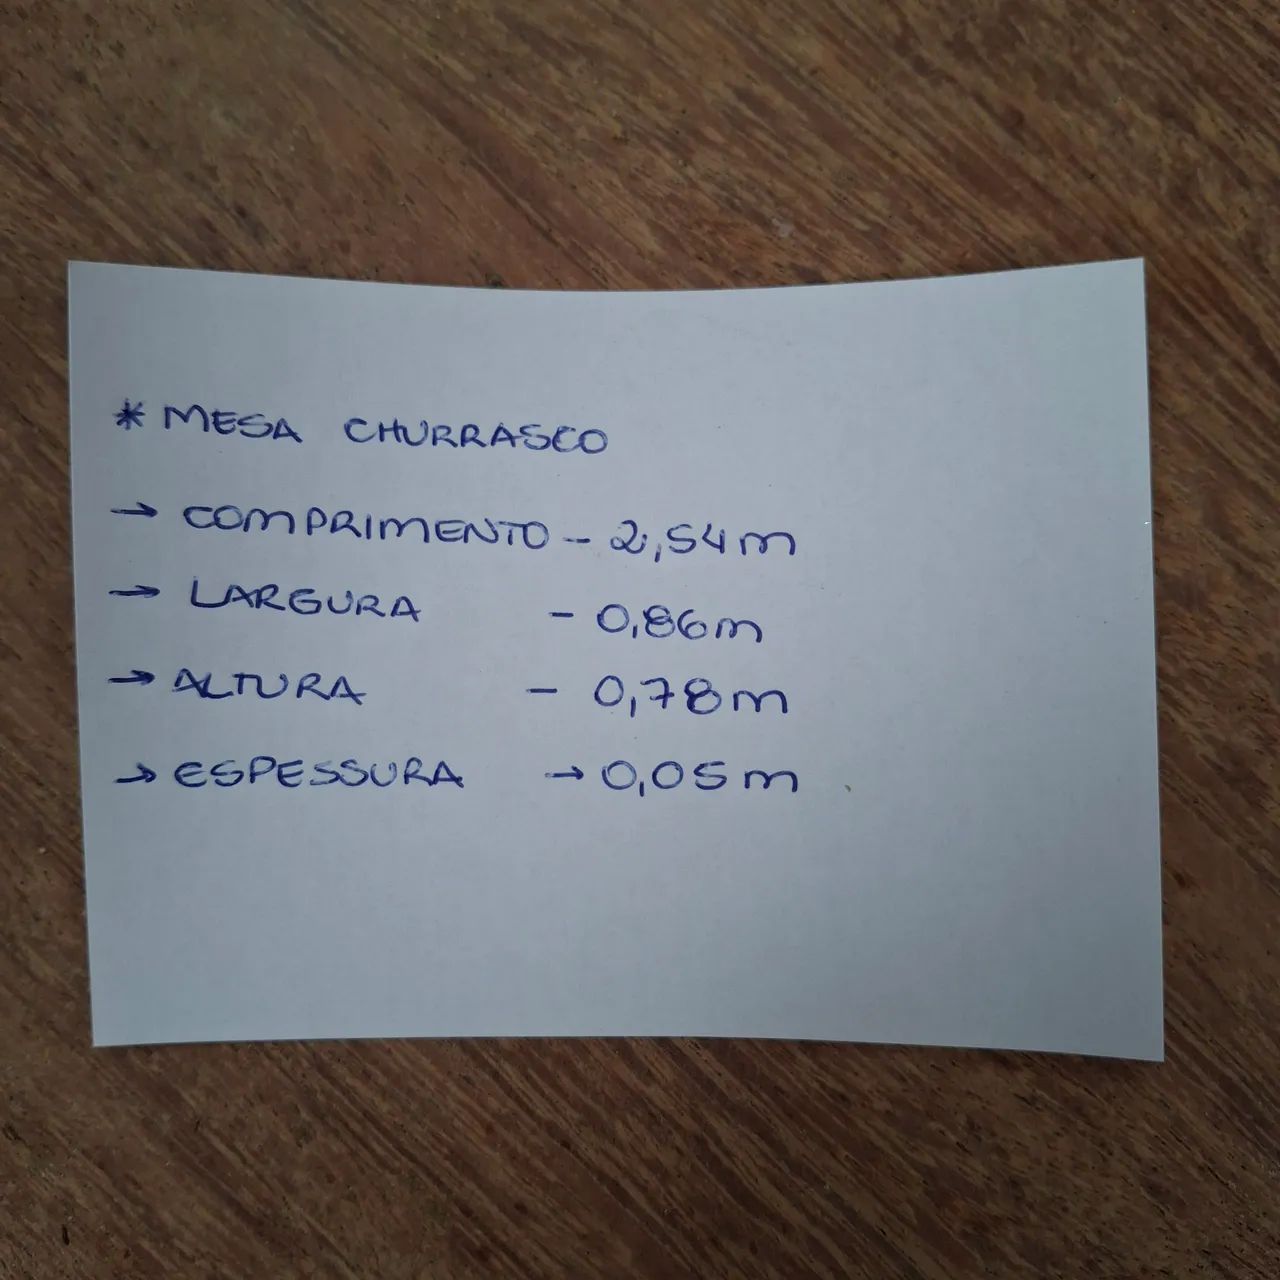 * MESA CHURRASCO
→ COMPRIMENTO - 2,54m
→ LARGURA - 0,86m
→ ALTURA - 0,78m
→ ESPESSURA → 0,05m